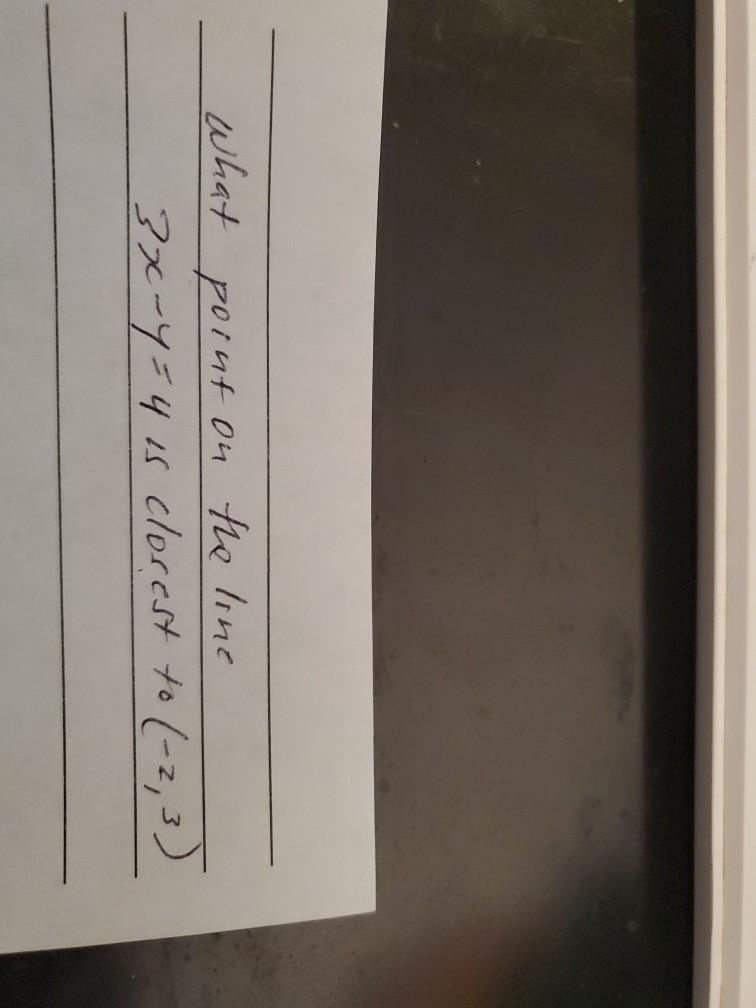 What point on the line
3x-y=4 is closest to (-2,3)